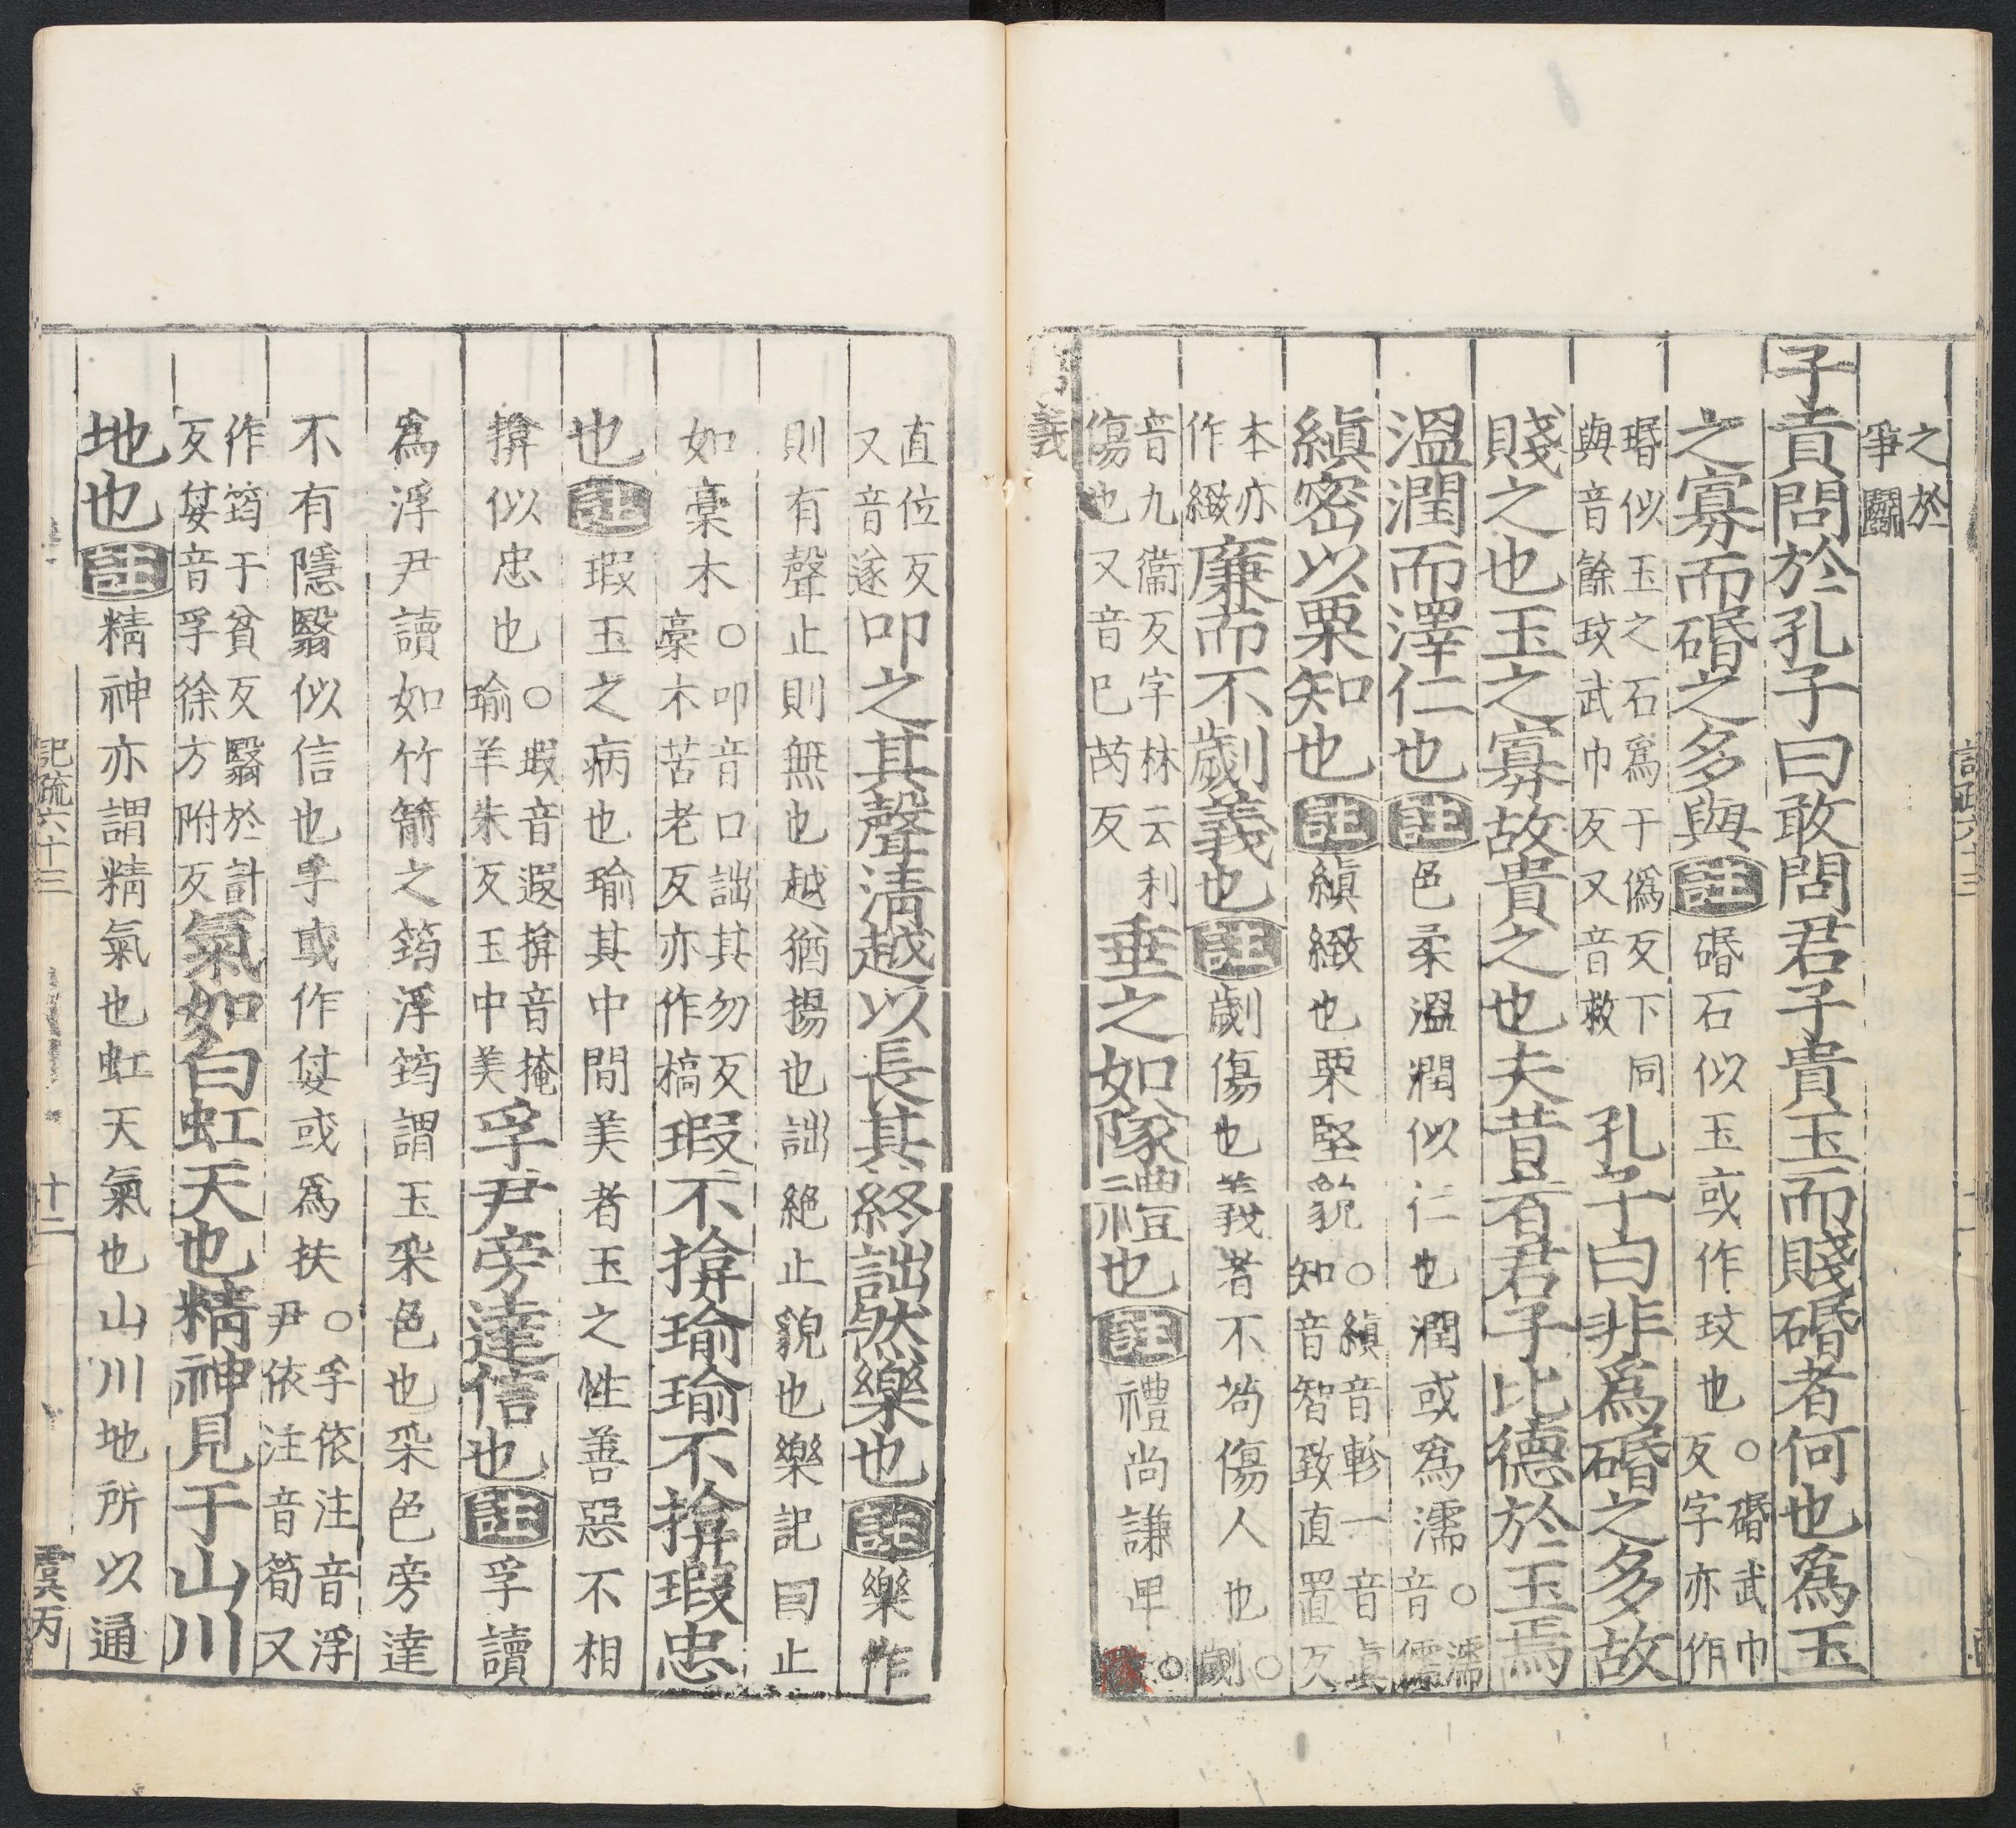 之於
爭鬬
子貢問於孔子曰敢問君子貴玉而賤碈者何也爲玉
之寡而碈之多與註碈石似玉或作玟也○碈武巾反字亦作
瑉似玉之石爲于僞反下同與音餘玟武巾反又音救孔子曰非爲碈之多故
賤之也玉之寡故貴之也夫昔者君子比德於玉焉
溫潤而澤仁也註色柔溫潤似仁也潤或爲濡○濡音儒
縝密以栗知也註縝緻也栗堅貌○縝音軫一音真知音智致直置反
本亦作緻廉而不劌義也註劌傷也義者不苟傷人也○劌
音九衞反字林云利傷也又音已芮反垂之如隊禮也註禮尚謙卑○
義
直位反又音遂叩之其聲清越以長其終詘然樂也註樂作
則有聲止則無也越猶揚也詘絕止貌也樂記曰止
如槀木○叩音口詘其勿反槀木苦老反亦作槁瑕不揜瑜瑜不揜瑕忠
也註瑕玉之病也瑜其中間美者玉之性善惡不相
揜似忠也○瑕音遐揜音掩瑜羊朱反玉中美孚尹旁達信也註孚讀
爲浮尹讀如竹箭之筠浮筠謂玉采色也采色旁達
不有隱翳似信也孚或作姇或爲扶○孚依注音浮尹依注音筍又
作筠于貧反翳於計反姇音孚徐方附反氣如白虹天也精神見于山川
地也註精神亦謂精氣也虹天氣也山川地所以通
記疏六十三
十二
虞丙